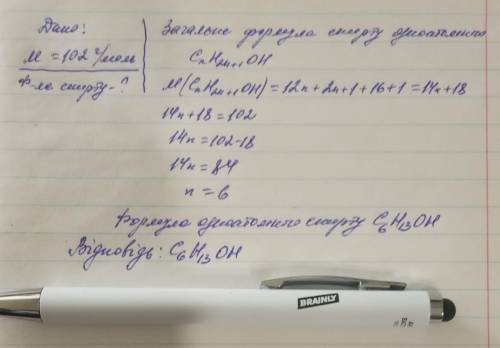 Дано:
М = 102 г/моль
Ф-ла спирту - ?
Загальна формула спирту одноатомного
CnH2n+1OH
M(CnH2n+1OH) = 12n + 2n + 1 + 16 + 1 = 14n + 18
14n + 18 = 102
14n = 102-18
14n = 84
n = 6
Формула одноатомного спирту C6H13OH
Відповідь: C6H13OH
BRAINLY